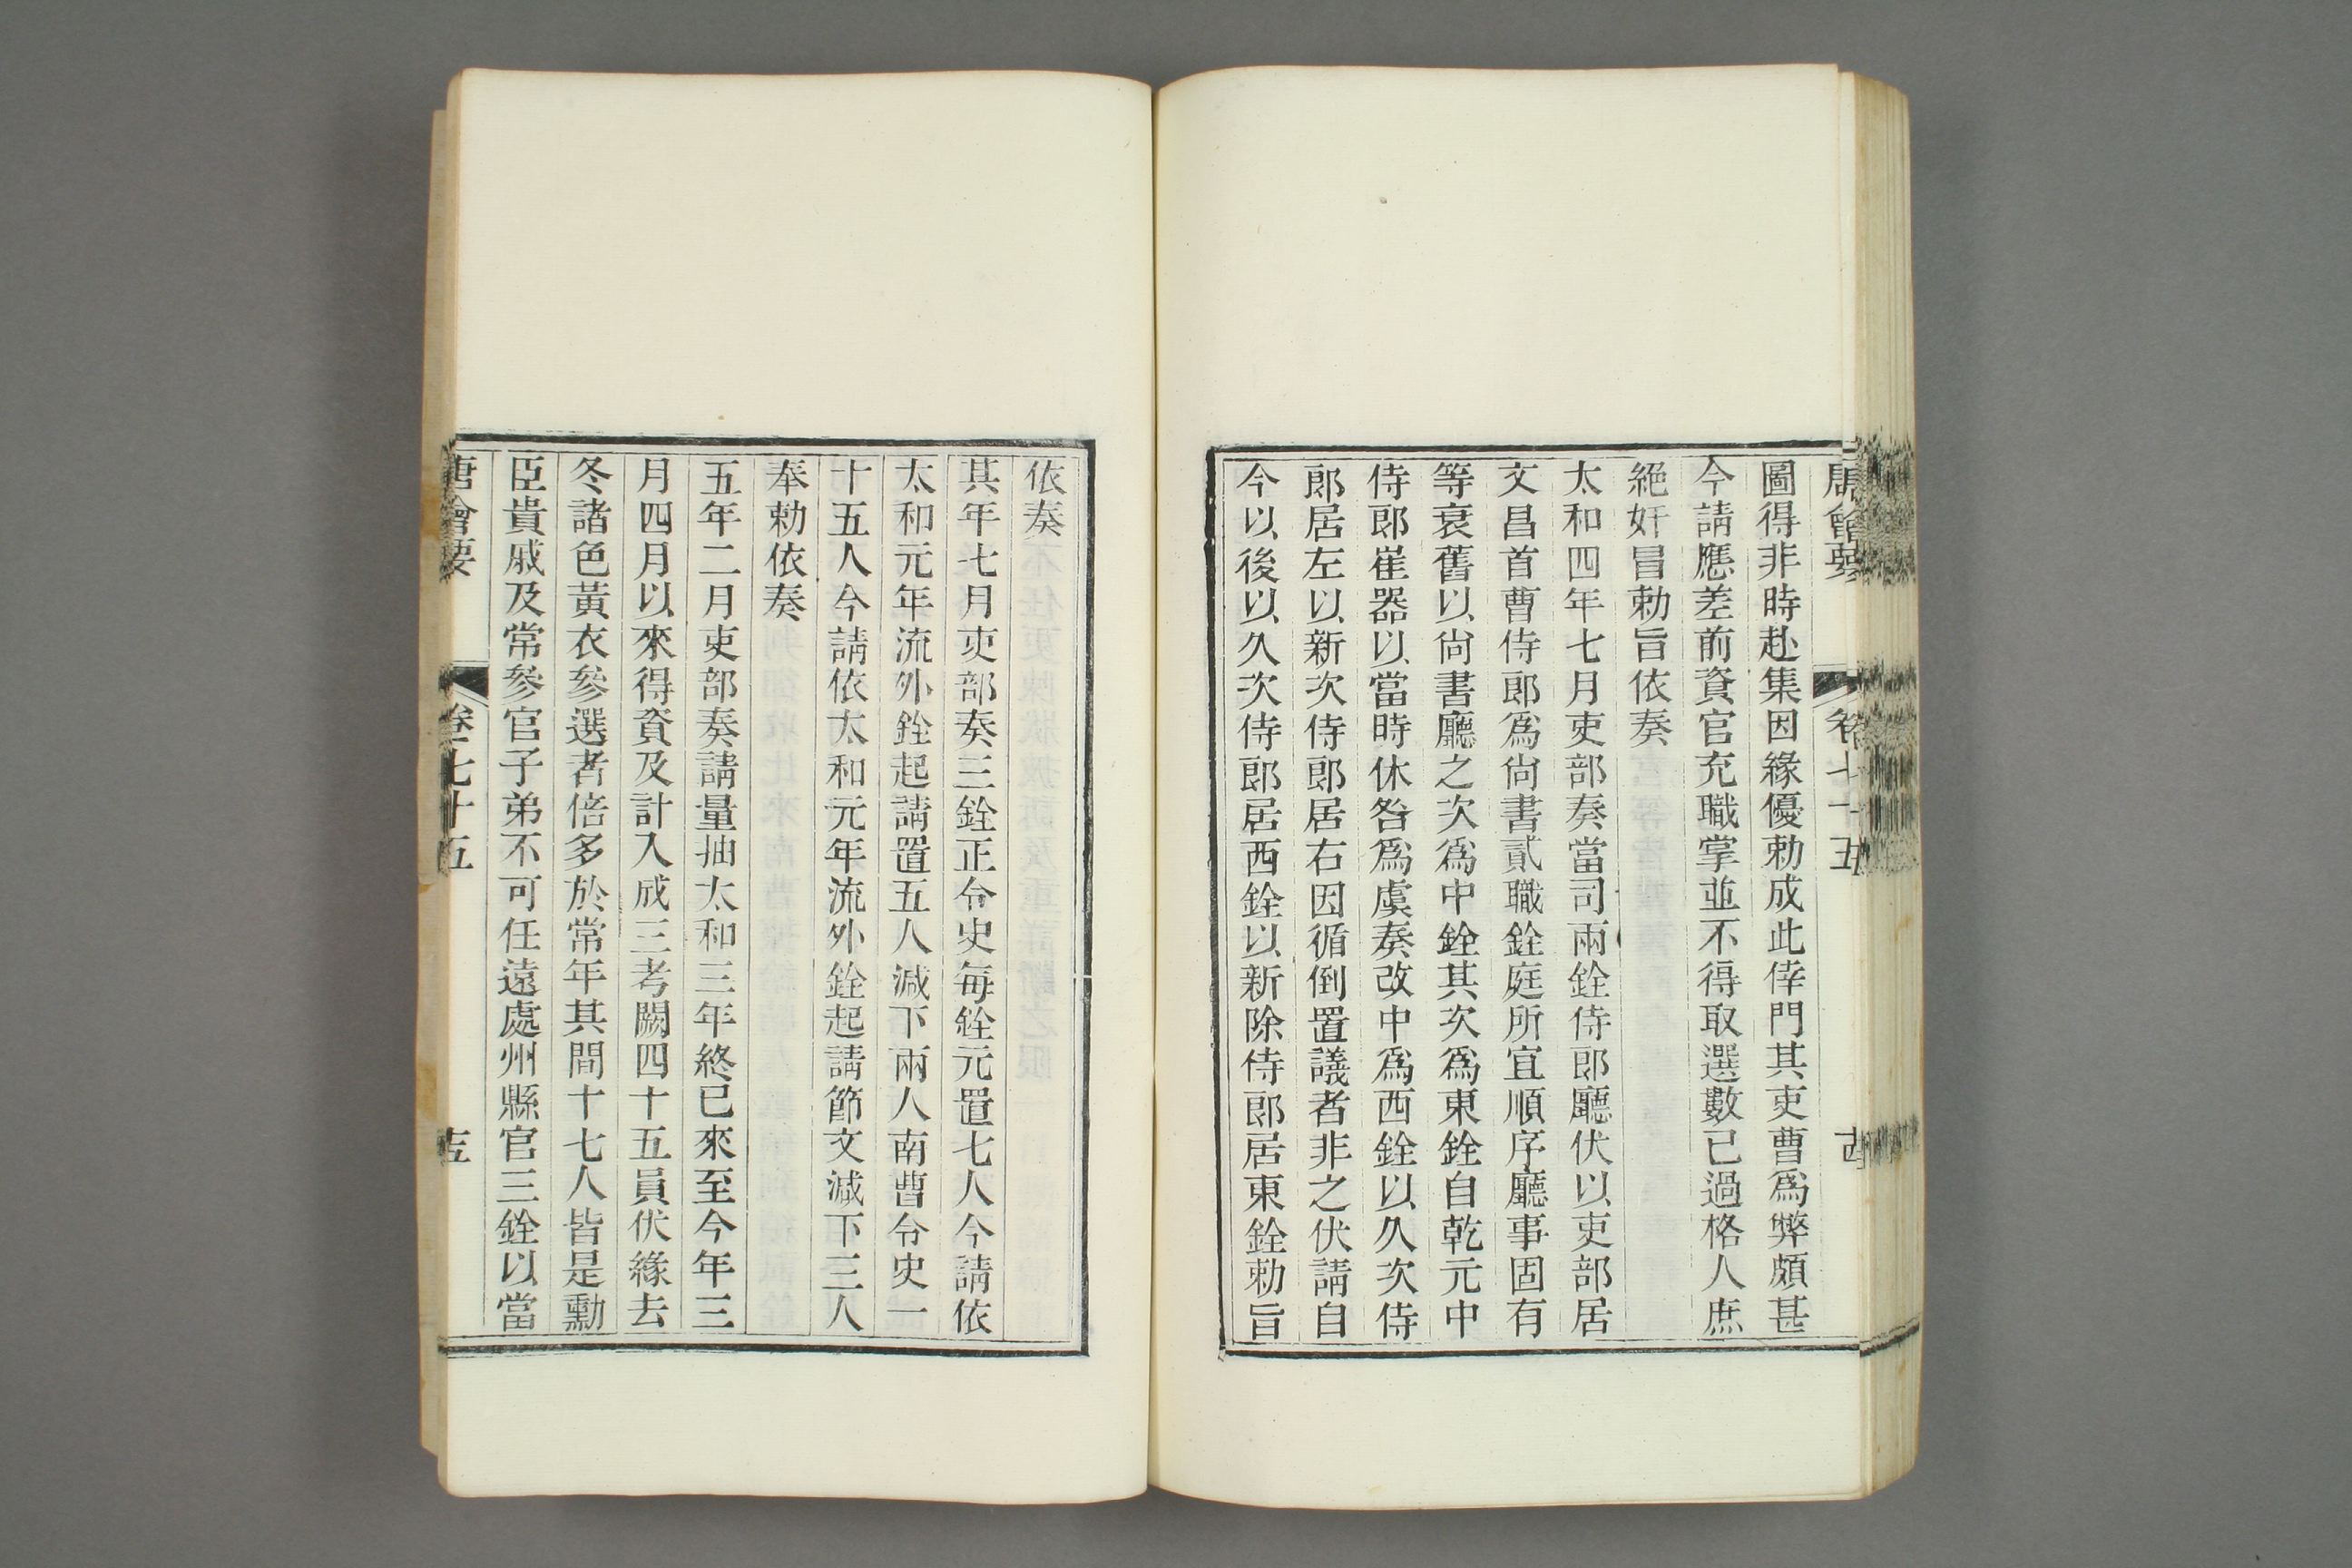 唐會要 卷七十五 十四
圖得非時赴集因緣優勅成此倖門其吏曹爲弊頗甚
今請應差前資官充職掌並不得取選數已過格人庶
絕奸冒勅旨依奏
太和四年七月吏部奏當司兩銓侍郎廳伏以吏部居
文昌首曹侍郎爲尙書貳職銓庭所宜順序廳事固有
等衰舊以尙書廳之次爲中銓其次爲東銓自乾元中
侍郎崔器以當時休咎爲虞奏改中爲西銓以久次侍
郎居左以新次侍郎居右因循倒置議者非之伏請自
今以後以久次侍郎居西銓以新除侍郎居東銓勅旨
依奏
其年七月吏部奏三銓正令史每銓元置七人今請依
太和元年流外銓起請置五人減下兩人南曹令史一
十五人今請依太和元年流外銓起請節文減下三人
奉勅依奏
五年二月吏部奏請量抽太和三年終已來至今年三
月四月以來得資及計入成三考闕四十五員伏緣去
冬諸色黃衣參選者倍多於常年其間十七人皆是勳
臣貴戚及常參官子弟不可任遠處州縣官三銓以當
唐會要 卷七十五 十五